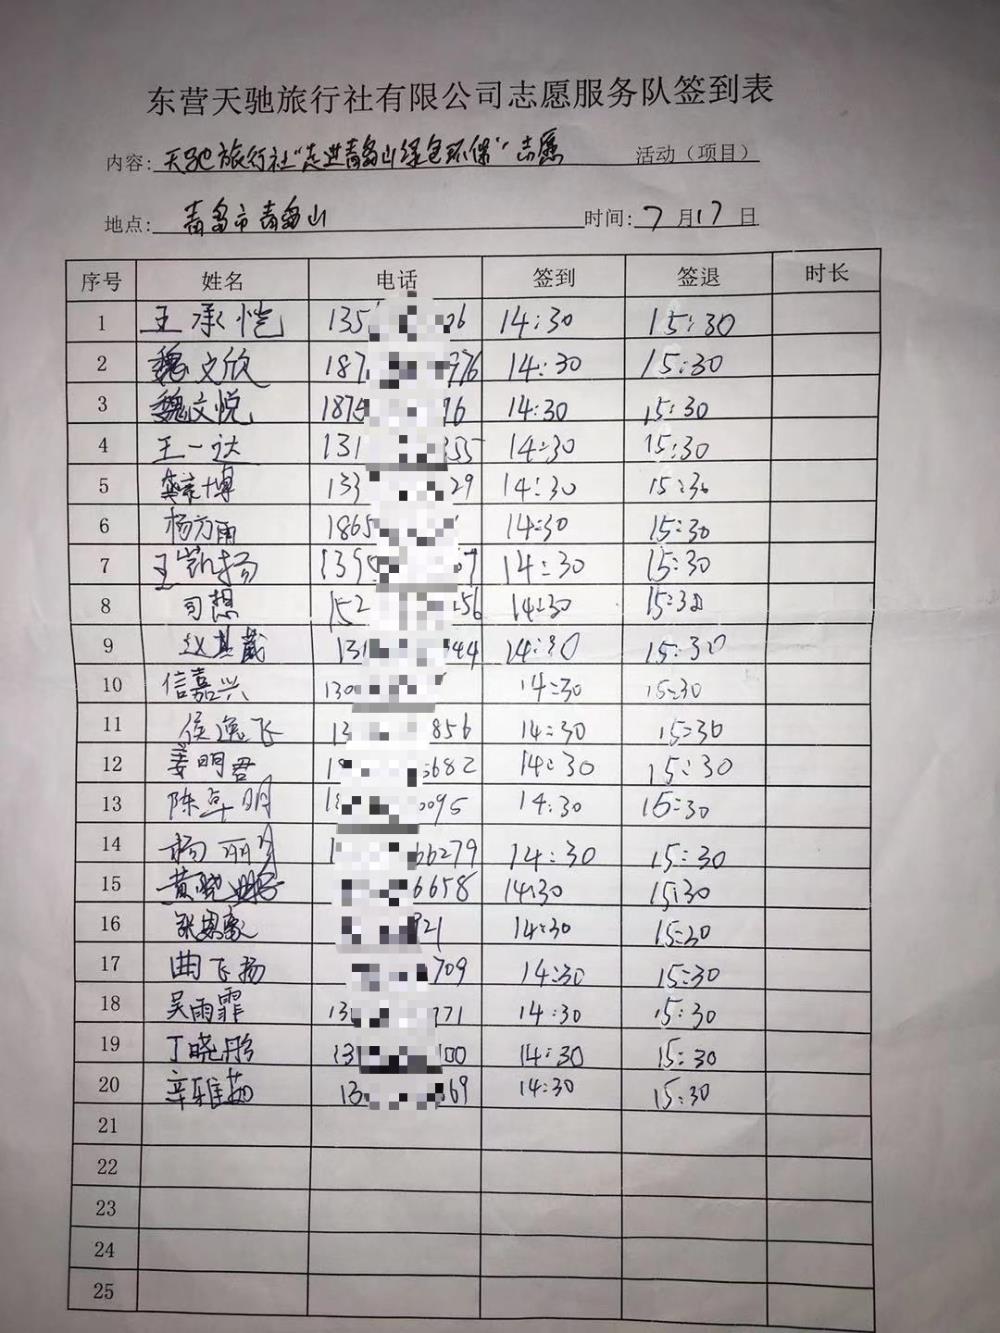 东营天驰旅行社有限公司志愿服务队签到表
内容: 天驰旅行社"走进青岛山绿色环保"志愿 活动（项目）
地点: 青岛市青岛山 时间: 7月17日
序号 姓名 电话 签到 签退 时长
1 王承恺 135 06 14:30 15:30
2 魏文欣 187 976 14:30 15:30
3 魏文悦 1875 96 14:30 15:30
4 王一达 131 355 14:30 15:30
5 博 133 29 14:30 15:30
6 杨方雨 1865 14:30 15:30
7 王凯扬 1390 07 14:30 15:30
8 司想 152 56 14:30 15:30
9 赵其葳 131 944 14:30 15:30
10 信嘉兴 130 14:30 15:30
11 侯逸飞 13 856 14:30 15:30
12 姜明君 18 5682 14:30 15:30
13 陈卓明 18 0095 14:30 15:30
14 杨丽 1 66279 14:30 15:30
15 黄晓 6658 14:30 15:30
16 张恩豪 921 14:30 15:30
17 曲飞扬 709 14:30 15:30
18 吴雨霏 13 771 14:30 15:30
19 丁晓彤 131 100 14:30 15:30
20 辛雅茹 13 69 14:30 15:30
21
22
23
24
25